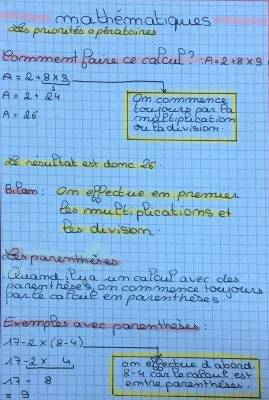 mathématiques
Les priorités opératoires
Comment faire ce calcul? : A=2+8×3
A = 2+8×3
A = 2 + 24
A = 26
On commence
toujours par la
multiplication
ou la division.
Le resultat est donc 26.
Bilan: On effectue en premier
les multiplications et
les division.
Les parenthèses
Quand il y a un calcul avec des
parenthèses, on commence toujours
par le calcul en parenthèses.
Exemples avec parenthèses:
17-2×(8-4)
17-2× 4
17 - 8
= 9
on effectue d'abord
8-4 car le calcul est
entre parenthèses.